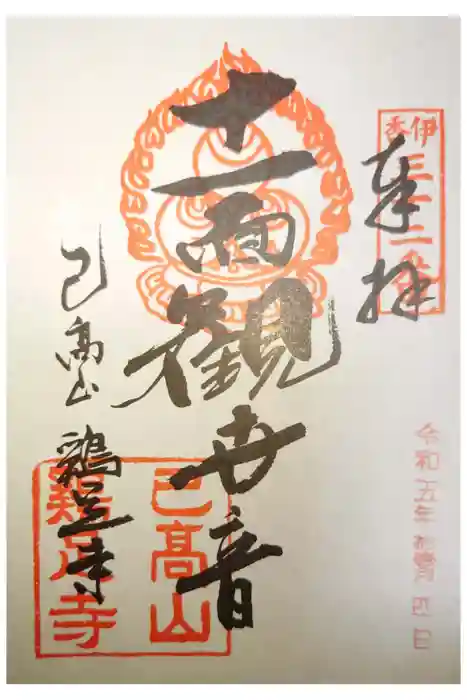 伊香
三十二番
奉拝
令和五年
四日
十一面観世音
己高山 鶏足寺
己髙山
鶏足寺